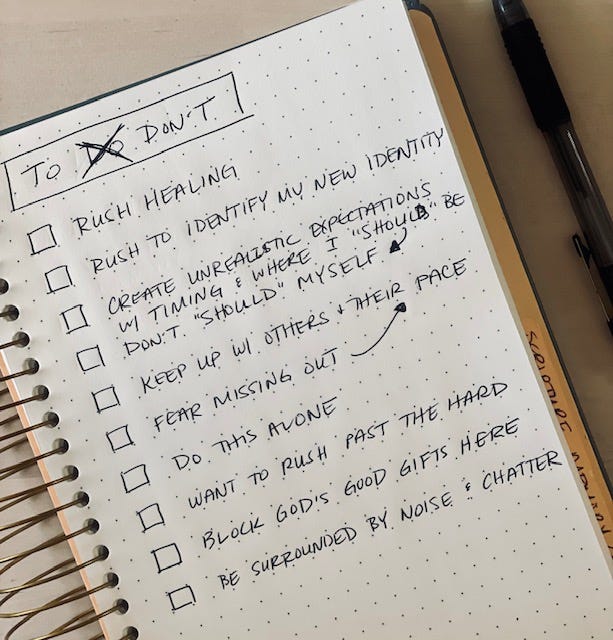 TO DO DON'T
RUSH HEALING
RUSH TO IDENTIFY MY NEW IDENTITY
CREATE UNREALISTIC EXPECTATIONS
W/ TIMING & WHERE I "SHOULD" BE
DON'T "SHOULD" MYSELF
KEEP UP W/ OTHERS & THEIR PACE
FEAR MISSING OUT
DO THIS ALONE
WANT TO RUSH PAST THE HARD
BLOCK GOD'S GOOD GIFTS HERE
BE SURROUNDED BY NOISE & CHATTER
SCRIPTURE